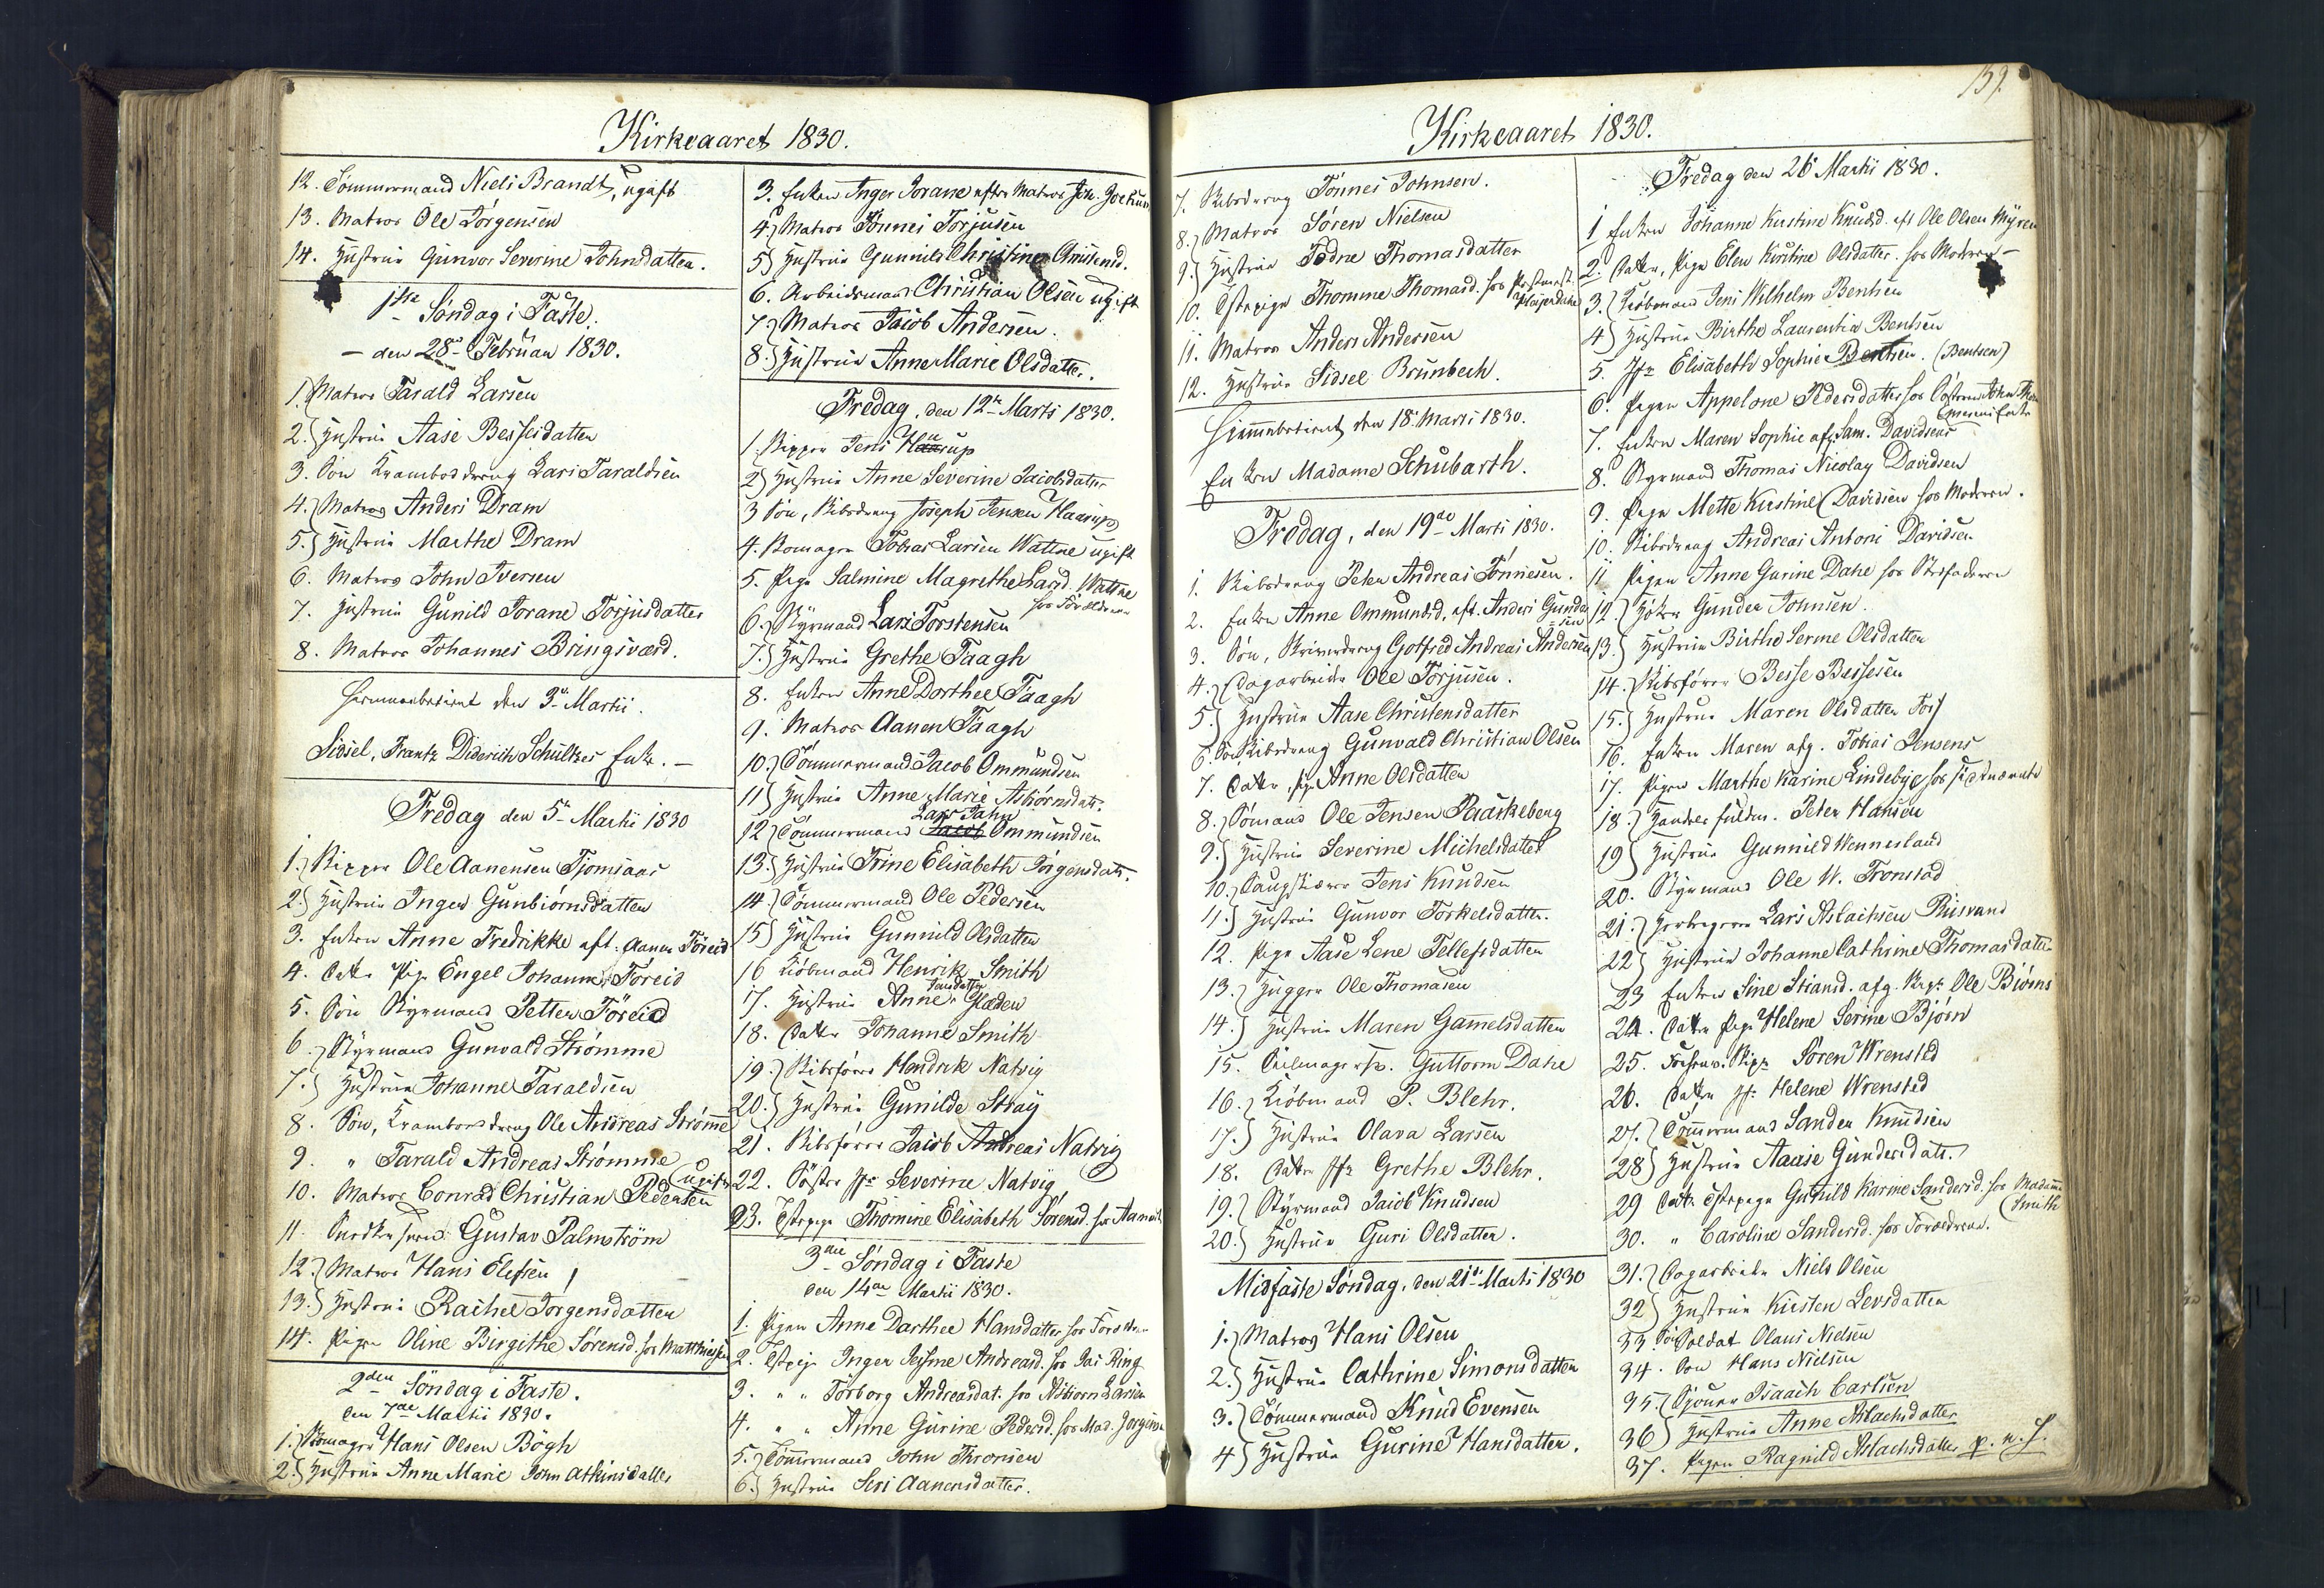 Kirkeaaret 1830.
12. Tömmermand Niels Brandt, ugift
13. Matros Ole Jörgensen
14. Hustrue Gunvor Severine Johnsdatter.
1ste Söndag i Faste.
– den 28de Februar 1830.
1. Matros Tarald Larsen
2. Hustrue Aase Bessesdatter
3. Sön Krambod dreng Lars Taraldsen
4. Matros Anders Dram
5. Hustrue Marthe Dram
6. Matros John Iversen
7. Hustrue Gunild Torane Torjusdatter
8. Matros Johannes Bringsværd.
Hiemmebetient den 3de Martii.
Sidsel, Frantz Diderich Schultzes Enke. –
Fredag den 5te Martii 1830
1. Skipper Ole Aanensen Tjomsaas
2. Hustrue Inger Gunbiörnsdatter
3. Enken Anne Fredrikke aft. Aanen Föreid
4. Datter Pige Engel Johanne Föreid
5. Sön Styrmand Petter Föreid
6. Styrmand Gunvald Strömme
7. Hustrue Johanne Taraldsen
8. Sön, Kramboddreng Ole Andreas Strömme
9. " Tarald Andreas Strömme
10. Matros Conrad Christian Pedersen ugift
11. Snedkersvend Gustav Palmström
12. Matros Hans Elefsen
13. Hustrue Rachel Jörgensdatter
14. Pigen Oline Birgithe Sörensd. hos Matthiesen
2den Söndag i Faste.
den 7de Martii 1830.
1. Skomager Hans Olsen Bögh
2. Hustrue Anne Marie John Atkinsdatter
3. Enken Inger Torane efter Matros Joh. Jochums
4. Matros Tönnes Torjusen
5. Hustrue Gunnild Christine Christensd.
6. Arbeidsmand Christian Olsen ugift
7. Matros Jacob Andersen.
8. Hustrue Anne Marie Olsdatter.
Fredag, den 12te Marts 1830.
1. Skipper Jens Haarup
2. Hustrue Anne Severine Jacobsdatter
3 Sön, Skibsdreng Joseph Jensen Haarup
4. Skomager Tobias Larsen Wattne ugift
5. Pige Salmine Magrethe Larsd. Wattne
hos Forældrene
6. Styrmand Lars Torstensen
7. Hustrue Grethe Faagh
8. Enken Anne Dorthee Faagh
9. Matros Aanen Faagh
10. Tömmermand Jacob Ommundsen
11. Hustrue Anne Marie Asbiörnsdatr.
Lars Jahn
12 Tömmermand Jacob Ommundsen
13. Hustrue Trine Elisabeth Jörgensdatr.
14. Tömmermand Ole Pedersen
15. Hustrue Gunnild Olsdatter
16 Kiöbmand Henrik Smith
17. Hustrue Anne Glæden
18. Datter Johanne Smith
19. Skibsförer Hendrik Natvig
20. Hustrue Gunilde Stray
21. Skibsförer Jacob Andreas Natvig
22. Söster Jfr Severine Natvig
23. Tstpige Thomine Elisabeth Sörensd. hos
3die Söndag i Faste
den 14de Martii 1830.
1. Pigen Anne Dorthee Hansdatter hos Foræld
2. Tstpige Inger Andreasd. hos Ring
3. " " Torborg Andreasdat. hos Asbiorn Larsen
4. " " Anne Gurine Pedersd. hos Mad. Jörgensen
5. Tömmermand John Thronsen
6. Hustrue Seri Aanensdatter.
139.
Kirkeaaret 1830.
7. Skibsdreng Tönnes Johnsen.
8. Matros Sören Nielsen
9. Hustrue Todne Thomasdatter
10. Tstepige Thomme Thomasd. hos
11. Matros Anders Andersen
12. Hustrue Sidsel Brunbech.
Hiemmebetient, den 18. Marts 1830.
Enken Madame Schubarth.
Fredag, den 19de Marts 1830.
1. Skibsdreng Peter Andreas Tönnesen.
2. Enken Anne Ommundsd. aft. Anders Gunder
=sen
3. Sön, Skriverdreng Gotfred Andreas Andersen
4. Dagarbeider Ole Torjusen.
5. Hustrue Aase Christensdatter
6. Sön, Skibsdreng Gunvald Christian Olsen
7. Datter, Pige Anne Olsdatter
8. Sömand Ole Jensen Paaskeberg
9. Hustrue Severine Michelsdatter
10. Saugskiærer Jens Knudsen
11. Hustrue Gunvor Torkelsdatter.
12. Pige Aase Lene Tellefsdatter
13. Hugger Ole Thomasen
14. Hustrue Maren Gamelsdatter
15. Seilmagersv. Guttorm Dahe
16. Kiöbmand P. Blehr.
17. Hustrue Olava Larsen
18. Datter Jfr Grethe Blehr.
19. Styrmand Jacob Knudsen
20. Hustrue Guri Olsdatter.
Midfaste Söndag, den 21de Marts 1830
1. Matros Hans Olsen
2. Hustrue Cathrine Simonsdatter
3. Tömmermand Knud Evensen
4 Hustrue Gurine Hansdatter.
Fredag den 26 Martii 1830.
1 Enken Johanne Kirstine Knudsd. aft Ole Olsen Myren
2. Datter, Pige Elen Kirstine Olsdatter hos Moderen –
3. Kiöbmand Jens Wilhelm Bentsen
4. Hustrue Birthe Laurentia Bentsen
5. Jfr Elisabeth Sophie Bentsen. (Bentsen)
6. Pigen Appelone Pedersdatter hos
7. Enken Maren Sophie afg. Sam. Davidsens
8. Styrmand Thomas Nicolay Davidsen
9. Pige Mette Kirstine Davidsen hos Moderen.
10. Skibsdreng Andreas Antoni Davidsen
11 Pigen Anne Gurine Dahe hos Stedfaderen
12. Höker Gunder Johnsen.
13. Hustrue Birthe Serine Olsdatter
14. Skibsförer Besse Bessesen
15. Hustrue Maren Olsdatter Foss
16. Enken Maren afg. Tobias Jensens
17. Pigen Marthe Karine Lindebye hos
18. Handelsfuldm. Peter Hansen
19. Hustrue Gunnild Wennesland
20. Styrmand Ole W. Tronstad
21. Lars Aslachsen Risvand
22 Hustrue Johanne Cathrine Thomasdatter
23 Enken Sine Stiansd. afg. Skip. Ole Biörns
24. Datter Pige Helene Serine Björn
25. Forhenv. Skipr Sören Wrensted
26. Datter Jfr Helene Wrensted
27. Tömmermand Sander Knudsen
28 Hustrue Aaase Gundersdatr.
29 Datr. Tstepige Gunild Karine Sandersd. hos Madame
Smith
30. " Caroline Sandersd. hos Forældrene.
31. Dagarbeider Niels Olsen
32 Hustrue Kirsten Levsdatter
33. Sön Soldat Olaus Nielsen
34. Sön Hans Nielsen
35. Isaach Carlsen
36 Hustrue Anne Aslachsdatter
37. Pigen Ragnild Aslachsdatter p. n. f.